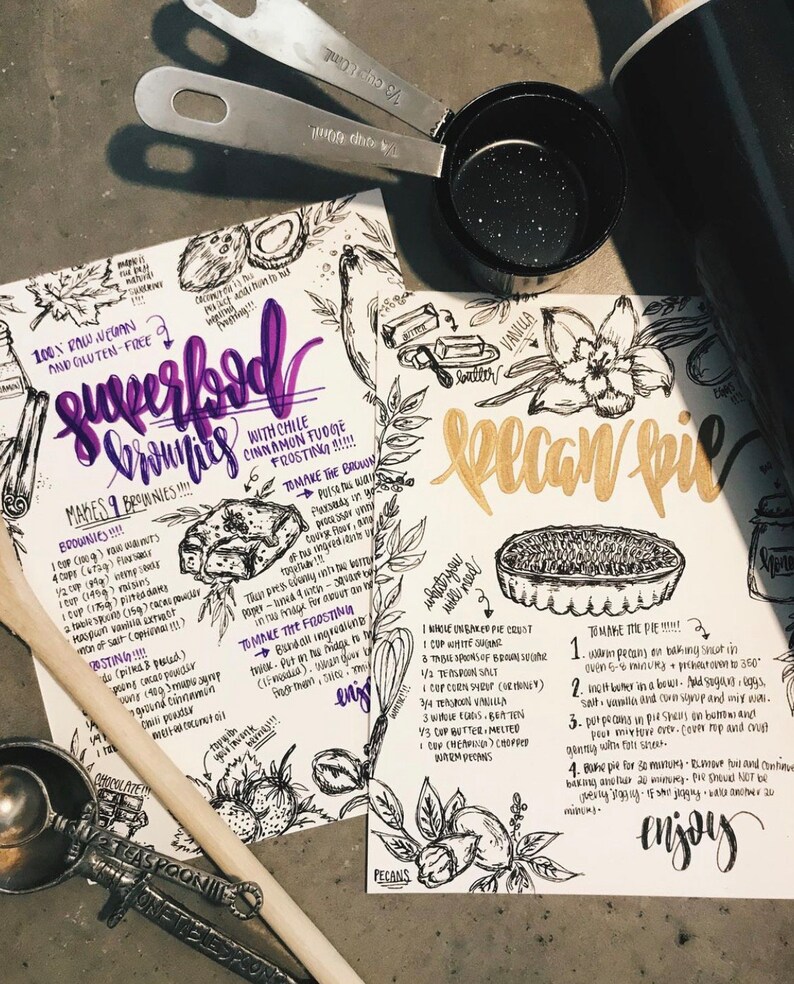 1/3 CUP 80ML
1/4 CUP 60ML
maple is
the best
natural
sweetener
!!!!
coconut oil is the
perfect addition to the
healthy
frosting!!!
100% RAW VEGAN
AND GLUTEN-FREE
superfood
brownies
WITH CHILE
CINNAMON FUDGE
FROSTING !!!!!
MAKES 9 BROWNIES!!!!
BROWNIES!!!!
1 CUP (100g) raw walnuts
flaxseeds
1/2 CUP (84g) hemp seeds
1 CUP (145g) raisins
1 CUP (175g) pitted dates
2 table spoons (15g) cacao powder
teaspoon vanilla extract
of salt (optional!!!)
FROSTING!!!!
(pitted & peeled)
spoons cacao powder
spoons (40g) maple syrup
ground cinnamon
chili powder
melted coconut oil
TO MAKE THE BROWN
pulse the
flaxseeds in
processor
course flour, and
of the ingredients
together!!
Then press evenly into the bottom
paper-lined 9 inch-square
in the fridge for about an
TO MAKE THE FROSTING
Blend all ingredients
thick. Put in the fridge to
(if needed). When your
frost them, slice,
enjo
top with
your favorite
berries!!!
CHOCOLATE!!!
1/2 TEASPOON
ONE TABLESPOON
BUTTER
butter
VANILLA
EGGS
!!!!
pecan pie
honey
what you
will need
1 WHOLE UNBAKED PIE CRUST
1 CUP WHITE SUGAR
3 TABLE SPOONS OF BROWN SUGAR
1/2 TEASPOON SALT
1 CUP CORN SYRUP (OR HONEY)
3/4 TEASPOON VANILLA
3 WHOLE EGGS, BEATEN
1/3 CUP BUTTER, MELTED
1 CUP (HEAPING) CHOPPED
WARM PECANS
TO MAKE THE PIE!!!!!
1. warm pecans on baking sheet in
oven 5-8 minutes + preheat oven to 350°
2. melt butter in a bowl. Add sugars, eggs,
salt, vanilla and corn syrup and mix well.
3. put pecans in pie shells on bottom and
pour mixture over. Cover top and crust
gently with foil sheet.
4. Bake pie for 30 minutes. Remove foil and continue
baking another 20 minutes. Pie should NOT be
overly jiggly. If still jiggly, bake another 20
minutes.
enjoy
WHISK!!!
PECANS